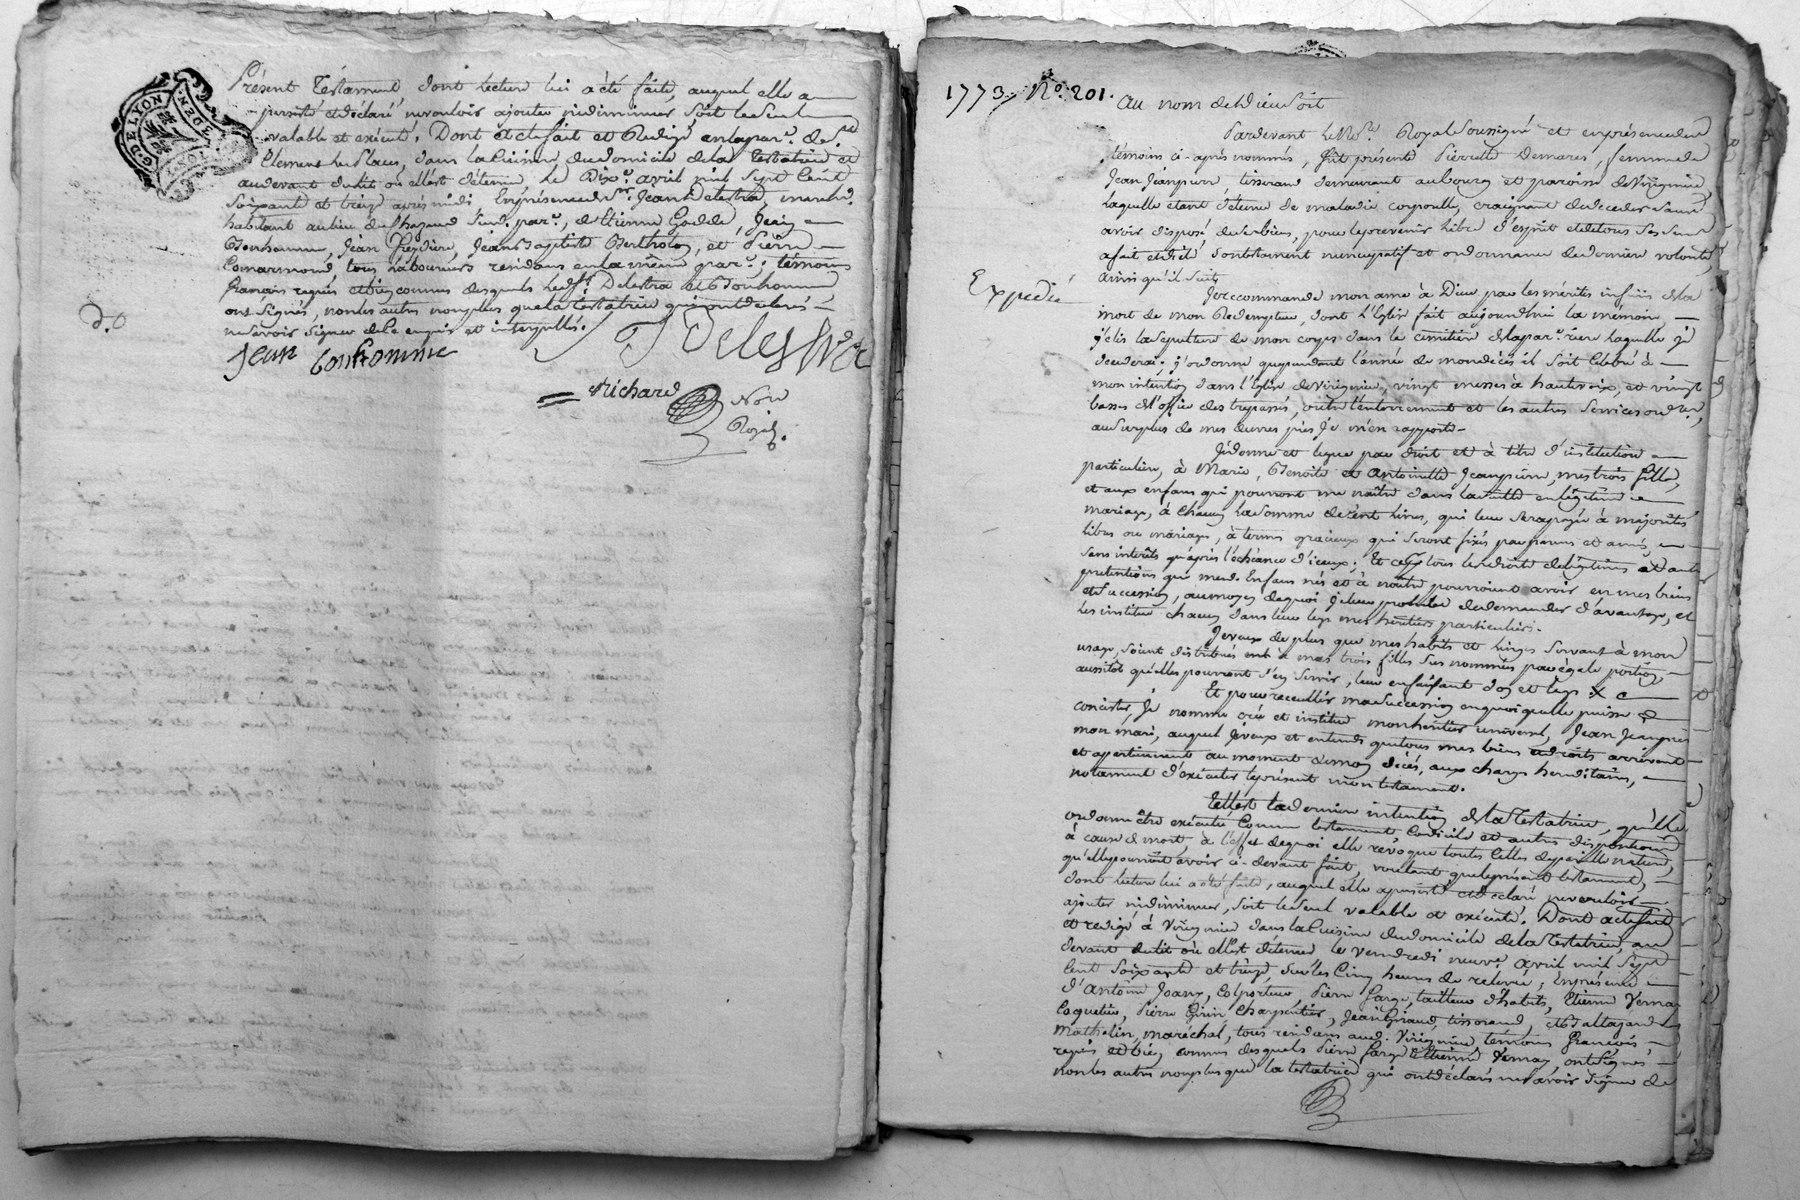 G. DE LYON
DEN.
Présent Testament dont lecture lui a été faite, auquel elle a
persisté et déclaré ne vouloir ajouter ni diminuer, soit le seul
valable et exécuté. Dont acte fait et Rédigé en la par.e de S.t
Clement les Places, dans la Cuisine du domicile de la testatrice et
au devant du lit où elle est détenue Le Dix.e avril mil Sept Cent
Soixante et treize après midi En présence de S.r Jean Delestra, march.d
habitant au lieu du susd. par.e, d'Etienne Jean
Bonhomme, Jean Jean Baptiste Berthollon, et Pierre
Comarmond, tous Laboureurs résidans en la même par.e; témoins
français requis et bien connus desquels lesd. S.r Delestra et Bonhomme
ont signés, non les autres non plus que la testatrice qui ont déclarés
ne savoir signer de ce enquis et interpellés.
d.o
Jean bonhomme
J Delestra
Richard
No.re
Royal.
1773, No. 201.
Au nom de Dieu soit
Pardevant Le No.re Royal Soussigné et en présence des
témoins ci-après nommés, fut présente Pierrette Demares, femme de
Jean Jeanpierre, tisserand demeurant au bourg et paroisse de Virignieu,
Laquelle étant détenue de maladie corporelle, craignant de déceder sans
avoir disposé de ses biens, pour le prévenir Libre d'esprit et de tous ses sens
a fait et dicté son testament nuncupatif et ordonnance de dernière volonté,
ainsi qu'il suit
Expedié
Je recommande mon ame à Dieu par les mérites infinis de la
mort de mon Redempteur, dont L'Eglise fait aujourd'hui la mémoire
j'élis la sépulture de mon corps dans le cimetière de la par.e rière laquelle je
décederai; j'ordonne que pendant l'année de mon décès il soit célébré à
mon intention dans l'Eglise de Virignieu, vingt messes à haute voix, et vingt
basses de l'office des trepassés, outre l'enterrement et les autres services ord.res,
au surplus de mes œuvres pies Je m'en rapporte
Je donne et legue par droit et à titre d'institution
particulière, à Marie, Benoite et Antoinette Jeanpierre, mes trois filles,
et aux enfans qui pourront me naître dans la suite en légitime
mariage, à chacun la somme de cent livres, qui leur sera payée à majorités
libres ou mariages, à termes gracieux qui seront fixés par parens et amis
sans intérêts qu'après l'échéance d'iceux; Et ce pour tous les droits de légitime et autres
prétentions que mesd. Enfans nés et à naître pourroient avoir en mes biens
et succession, au moyen de quoi je leur prohibe de demander d'avantage, et
les institue chacun dans leur legs mes héritiers particuliers.
Je veux de plus que mes habits et linges servant à mon
usage, soient distribués entre mes trois filles sus nommées par égale portion
aussitôt qu'elles pourront s'en servir, leur en faisant don et legs
Et pour recueillir ma succession en quoi qu'elle puisse
consister, Je nomme crée et institue mon héritier universel, Jean Jeanpierre
mon mari, auquel je veux et entends que tous mes biens et droits arrivent
et appartiennent au moment de mon décès, aux charges hereditaires,
notament d'exécuter le présent mon testament.
Telle est la dernière intention de la testatrice, qu'elle
ordonne être exécutée comme testament Codicile et autres disposition
à cause de mort, à l'effet de quoi elle révoque toutes celles de pareille nature,
qu'elle pourroit avoir ci-devant fait, voulant que le présent testament,
dont lecture lui a été faite, auquel elle a persisté et déclaré ne vouloir
ajouter ni diminuer, soit le seul valable et exécuté. Dont acte fait
et redigé à Virignieu dans la Cuisine du domicile de la testatrice, au
devant du lit où elle est détenue le vendredi neuve avril mil sept
Cent Soixante et treize, sur les Cinq heures de relevée, En présence
d'Antoine Joanny, Colporteur Pierre Farge, tailleur d'habits, Etienne Vernay
Coquetier, Pierre Girin Charpentier, Jean Giraud, tisserand, et Baltazard
Mathelin, maréchal, tous résidans aud. Virignieu témoins françois
requis et bien connus desquels Pierre Farge et Etienne Vernay ont signés
non les autres non plus que la testatrice qui ont déclarés ne savoir signer de